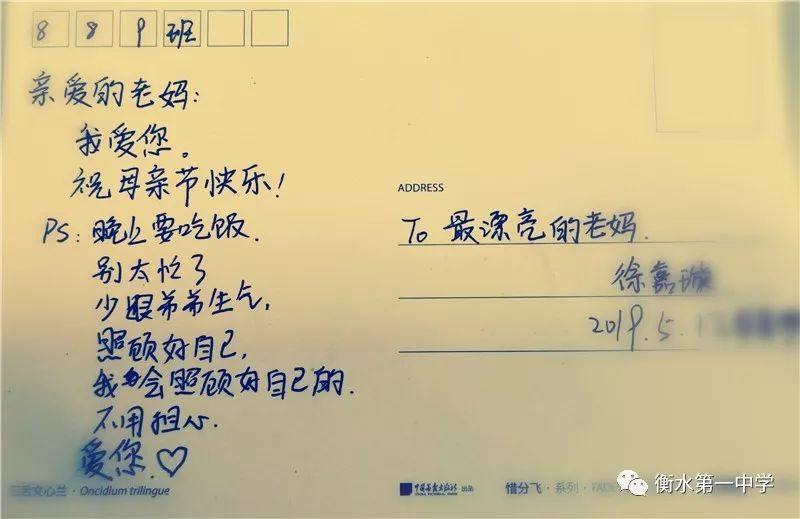 889班
亲爱的老妈:
我爱您。
祝母亲节快乐!
PS:晚上要吃饭.
别太忙了
少跟弟弟生气,
照顾好自己,
我会照顾好自己的.
不用担心.
爱您.♡
ADDRESS
To 最漂亮的老妈.
徐嘉璇
2019.5.1
三舌文心兰·Oncidium trilingue
中国画报出版社 出品
CHINA PICTORIAL PRESS
惜分飞·系列·FADE
衡水第一中学